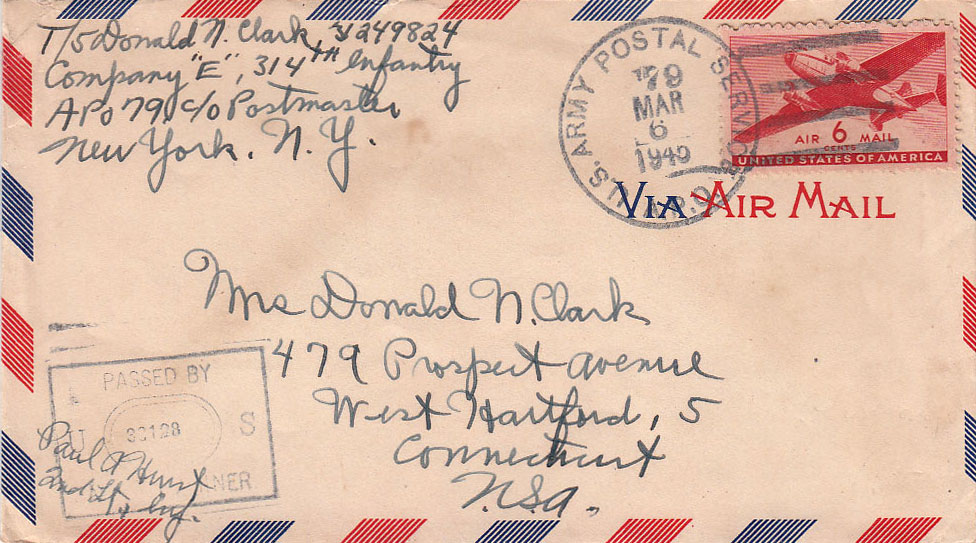 T/5 Donald N. Clark, 31249824
Company "E", 314th Infantry
APO 79, c/o Postmaster
New York, N.Y.
U.S. ARMY POSTAL SERVICE
79
MAR
6
1945
A.P.O.
AIR 6 MAIL
CENTS
UNITED STATES OF AMERICA
VIA AIR MAIL
Mrs Donald N. Clark
479 Prospect Avenue
West Hartford, 5
Connecticut
U.S.A.
PASSED BY
U S
32128
Paul A Hurst
2nd Lt. Inf.